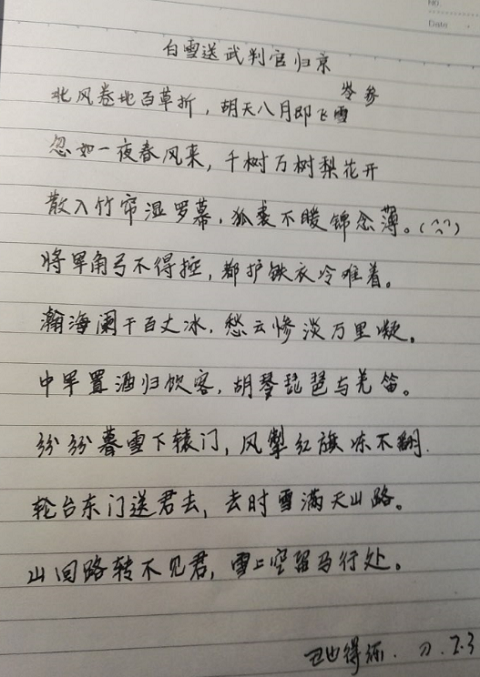 NO.
Date
白雪送武判官归京
岑参
北风卷地百草折，胡天八月即飞雪
忽如一夜春风来，千树万树梨花开
散入竹帘湿罗幕，狐裘不暖锦衾薄。
将军角弓不得控，都护铁衣冷难着。
瀚海阑干百丈冰，愁云惨淡万里凝。
中军置酒归饮客，胡琴琵琶与羌笛。
纷纷暮雪下辕门，风掣红旗冻不翻.
轮台东门送君去，去时雪满天山路。
山回路转不见君，雪上空留马行处。